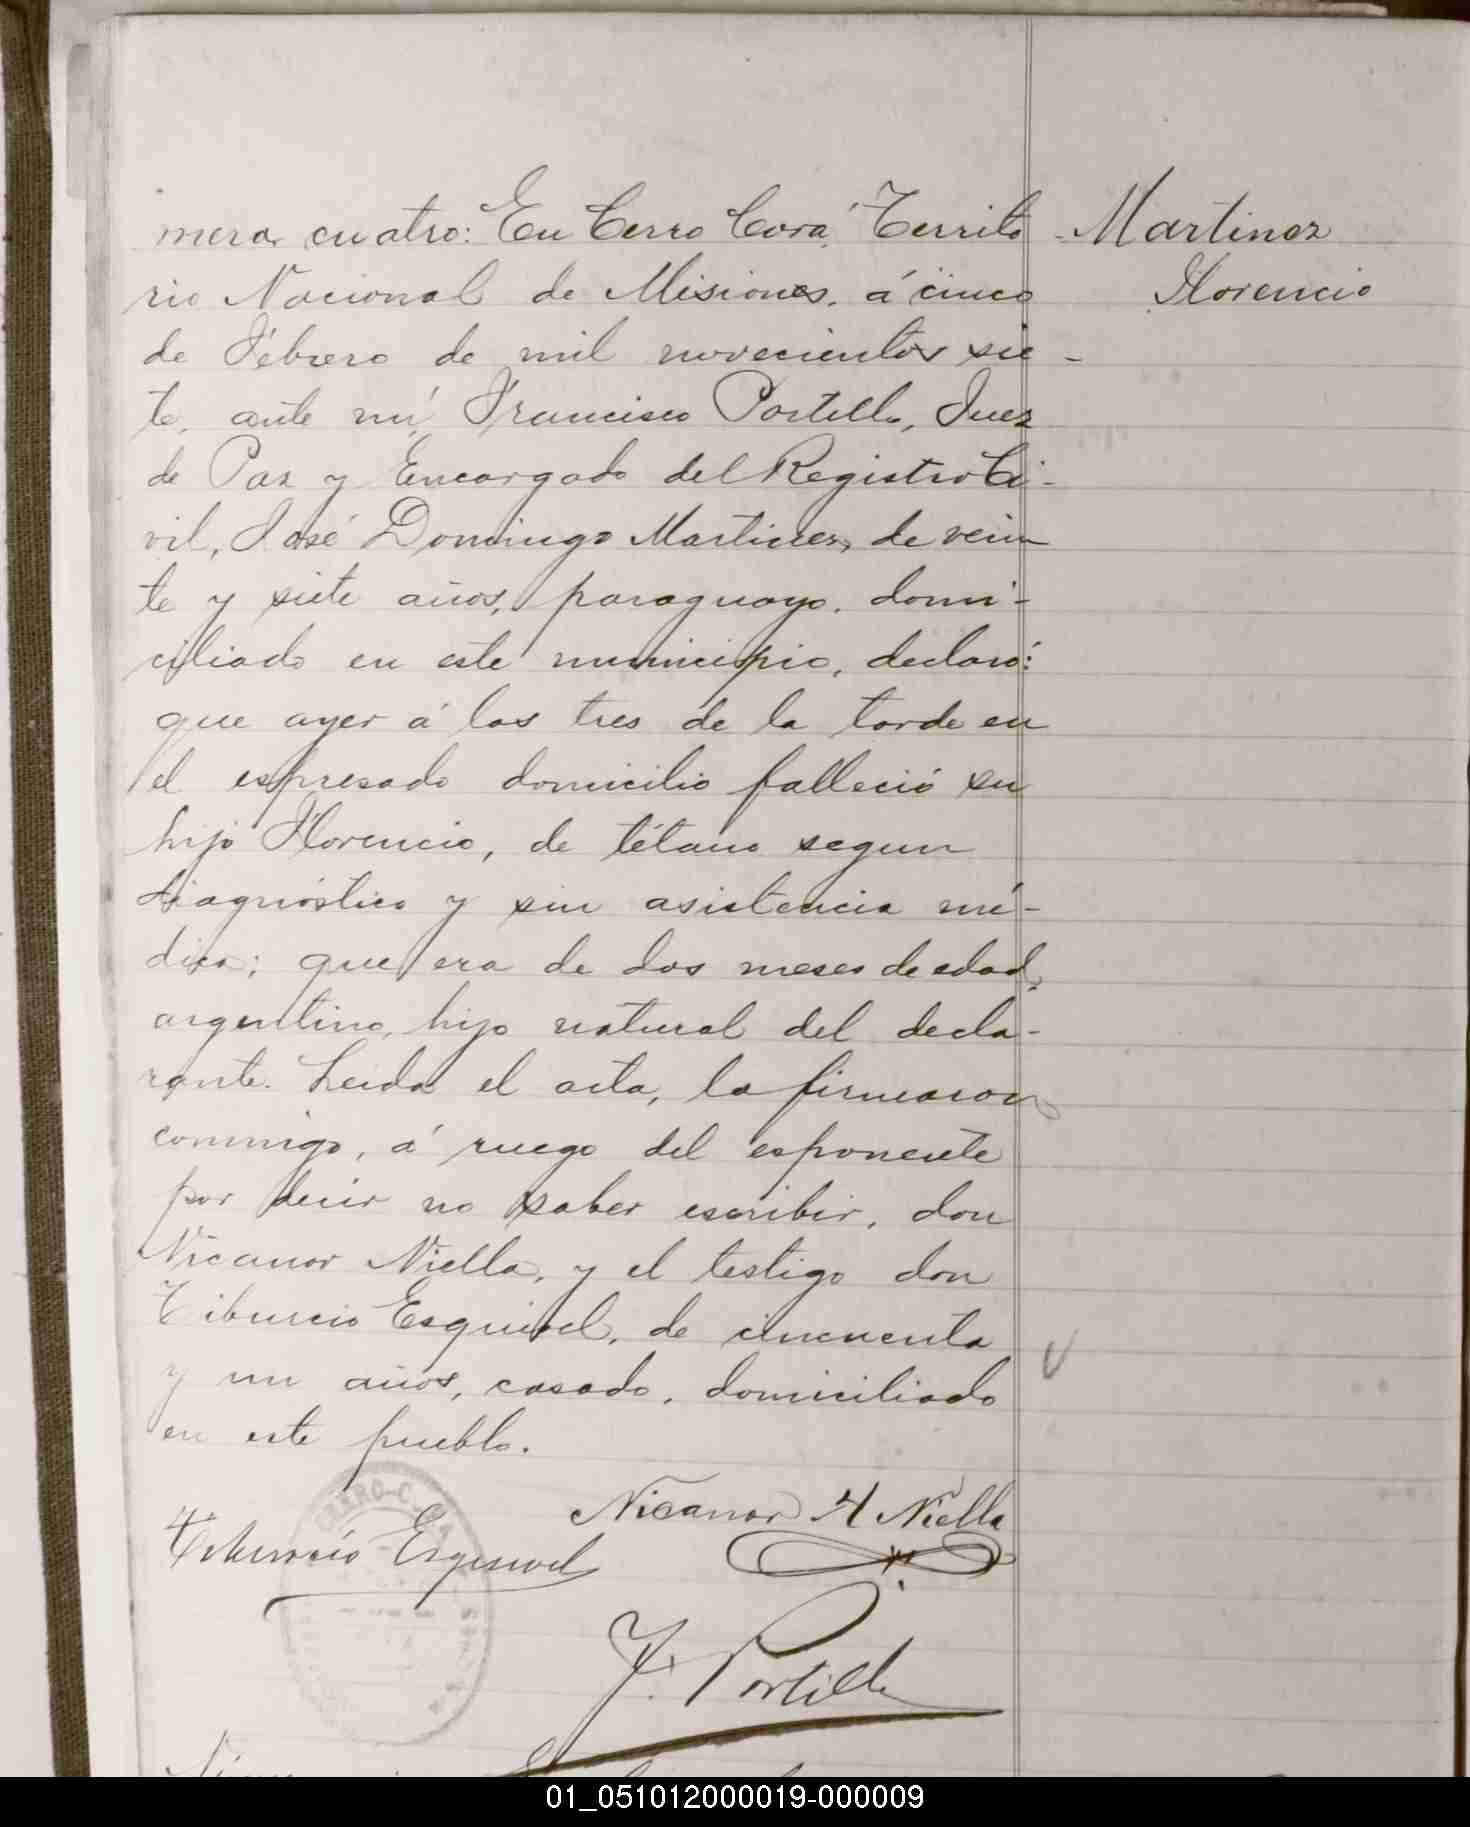 mero cuatro: En Cerro Corá, Territo
Martinez
rio Nacional de Misiones, á cinco
Florencio
de Febrero de mil novecientos sie-
te, ante mí, Francisco Portillo, Juez
de Paz y Encargado del Registro Ci-
vil, José Domingo Martinez, de vein
te y siete años, paraguayo, domi-
ciliado en este municipio, declaró:
que ayer á las tres de la tarde en
el espresado domicilio falleció su
hijo Florencio, de tétano segun
diagnóstico y sin asistencia mé-
dica; que era de dos meses de edad,
argentino, hijo natural del decla-
rante. Leida el acta, la firmaron
conmigo, á ruego del esponente
por decir no saber escribir, don
Nicanor Niella, y el testigo don
Tiburcio Esquivel, de cincuenta
y un años, casado, domiciliado
en este pueblo.
CERRO-C
Nicanor H Niella
Tiburcio Esquivel
F. Portillo
01_051012000019-000009